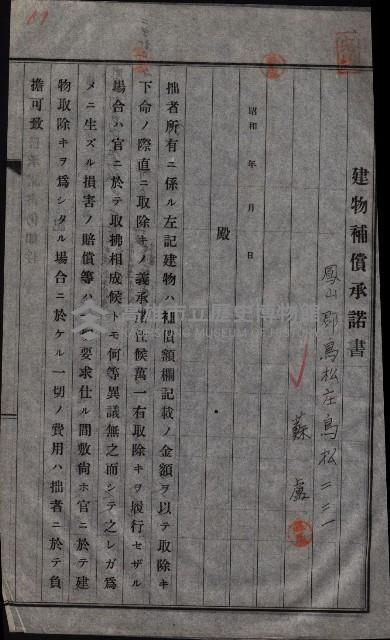 建物補償承諾書
鳳山郡鳥松庄鳥松二二一
蘇
昭和 年 月 日
殿
拙者所有ニ係ル左記建物ハ補償額欄記載ノ金額ヲ以テ取除キ
下命ノ際直ニ取除キノ義承諾仕候萬一右取除キヲ履行セザル
場合ハ官ニ於テ取拂相成候トモ何等異議無之而シテ之レガ爲
メニ生ズル損害ノ賠償等ハ要求仕ル間敷尚ホ官ニ於テ建
物取除キヲ爲シタル場合ニ於ケル一切ノ費用ハ拙者ニ於テ負
擔可致
高雄市立歷史博物館